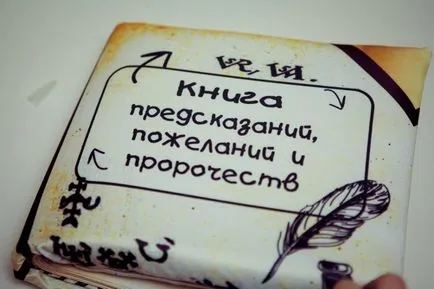 Книга
предсказаний,
пожеланий и
пророчеств